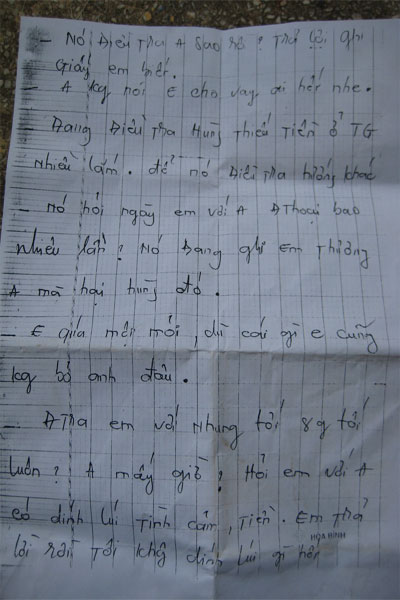 - Nó Điều Tra A sao rồi? Trả lời ghi
Giấy em biết.
- A kg nói E cho vay ai hết nhe.
- Đang Điều Tra Hùng Thiếu Tiền ở TG
nhiều lắm. để nó Điều Tra hướng khác
- Nó hỏi ngày em với A ĐThoại bao
nhiêu lần? Nó Đang nghi Em Thương
A mà hại hùng đó.
- E giữa mệt mỏi, dù cái gì e cũng
kg bỏ anh đâu.
- ĐTra em với Nhung tối 8g tối
luôn? A mấy giờ? Hỏi em với A
có dính líu Tình cảm, Tiền. Em Trả
lời rồi Tôi khg dính líu gì hết
HÒA BÌNH